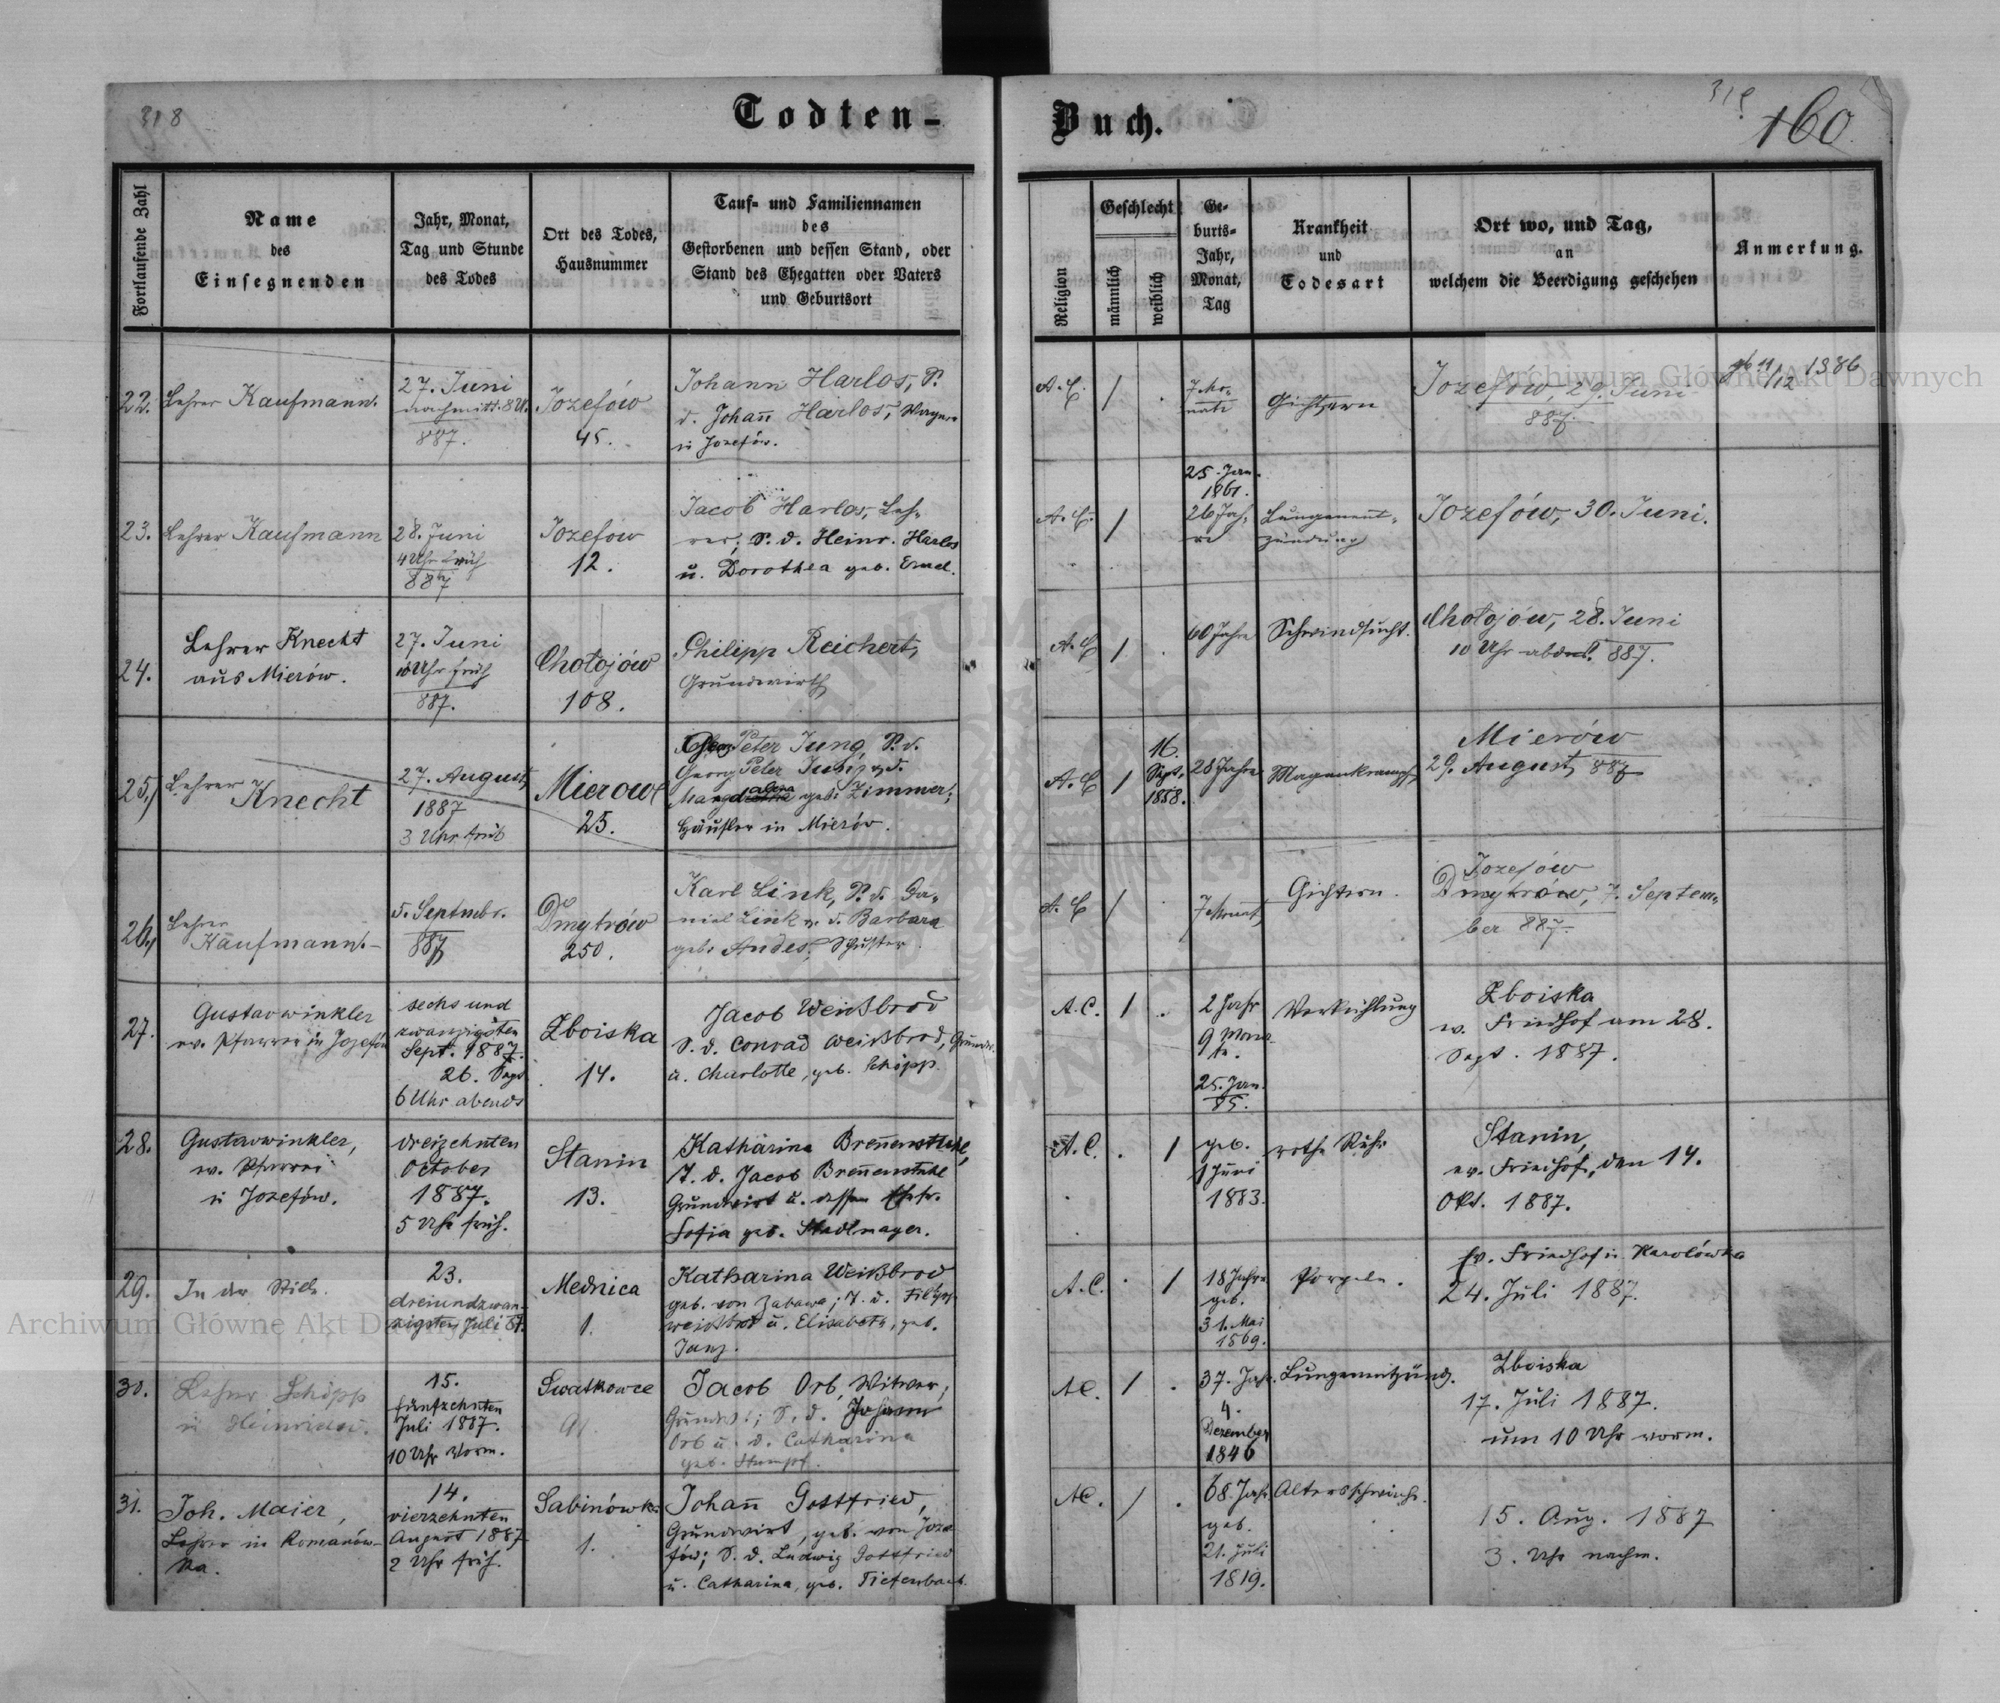 318
Todten-
Buch.
319
160
Fortlaufende Zahl
Name
des
Einsegnenden
Jahr, Monat,
Tag und Stunde
des Todes
Ort des Todes,
Hausnummer
Tauf- und Familiennamen
des
Gestorbenen und dessen Stand, oder
Stand des Ehegatten oder Vaters
und Geburtsort
Religion
Geschlecht
männlich
weiblich
Ge-
burts-
Jahr,
Monat,
Tag
Krankheit
und
Todesart
Ort wo, und Tag,
an
welchem die Beerdigung geschehen
Anmerkung.
22.
Lehrer Kaufmann.
27. Juni
nachmitt. 8 U.
887.
Jozefów
45.
Johann Harlos, S.
d. Johañ Harlos, Wagner
in Jozefów.
A.C.
/
7 Mo-
nate
Gichtern
Jozefow, 29. Juni
887.
11/12 1886
23.
Lehrer Kaufmann
28. Juni
4 Uhr früh
887
Jozefow
12.
Jacob Harlos, Leh-
rer, S. d. Heinr. Harlos
u. Dorothea geb.
A.C.
/
25. Jan.
1861.
26 Jah-
re
Lungenent-
zündung
Jozefów, 30. Juni.
24.
Lehrer Knecht
aus Mierów.
27. Juni
10 Uhr früh
887.
Chołojów
108.
Philipp Reichert,
Grundwirth
A.C
/
60 Jahre
Schwindsucht.
Chołojów, 28. Juni
10 Uhr 887.
25.
Lehrer
Knecht
27. August
1887
3 Uhr früh
Mierow
25.
Peter Jung, S. d.
Georg Peter Jung u. d.
geb. Zimmer,
Häusler in Mierów.
A.C
/
16.
Sept.
1858.
28 Jahre
Magenkrampf
Mierów
29. August 887
26.
Lehrer
Kaufmann.-
5. Septmbr.
887
Dmytrów
250.
Karl Link, S. d. Da-
niel Link u. d. Barbara
geb. Andes, Schuster.
A.C
/
7 Monat
Gichtern.
Jozefów
Dmytrów, 7. Septem-
ber 887.
27.
Gustav Winkler
ev. Pfarrer in Jozefów
sechs und
zwanzigsten
Sept. 1887.
26. Sept
6 Uhr abends
Zboiska
14.
Jacob Weißbrod
S. d. Conrad Weißbrod, Grundw.
u. Charlotte, geb. Schöpp.
A.C.
1
2 Jahr
9 Mona-
te.
25. Jan.
85.
Verkühlung
Zboiska
ev. Friedhof am 28.
Sept. 1887.
28.
Gustav Winkler,
ev. Pfarrer
in Jozefów.
dreizehnten
October
1887.
5 Uhr früh.
Stanin
13.
Katharina Breñenstuhl,
T. d. Jacob Breñenstuhl
Grundwirt u. dessen Ehefr.
Sofia geb. Stadlmayer.
A.C.
1
geb.
1 Juni
1883.
rothe Ruhr
Stanin,
ev. Friedhof, den 14.
Okt. 1887.
29.
In der Stille.
23.
dreiundzwan-
zigsten Juli 87.
Mednica
1.
Katharina Weißbrod
geb. von Zabawa; T. d. Filipp
Weißbrod u. Elisabeth, geb.
Janz.
A.C.
1
18 Jahre
geb.
31. Mai
1869.
ev. Friedhof in Karolówka
24. Juli 1887.
30.
Lehrer Schöpp
in Heinrichsd.
15.
fünfzehnten
Juli 1887.
10 Uhr Vorm.
Swatkowce
Jacob Orb, Witwer,
Grundw.; S. d. Johann
Orb u. d. Catharina
geb. Stumpf.
A.C.
1
37. Jahr.
4.
Dezember
1846
Lungenentzünd.
Zboiska
17. Juli 1887.
um 10 Uhr vorm.
31.
Joh. Maier,
Lehrer in Romanów-
ka.
14.
vierzehnten
August 1887
2 Uhr früh.
Sabinówka
1.
Johañ Gottfried,
Grundwirt, geb. von Joze-
fów; S. d. Ludwig Gottfried
u. Catharina, geb. Tiefenbach.
A.C.
/
68. Jahr
geb.
21. Juli
1819.
Altersschwäche.
15. Aug. 1887
3. Uhr nachm.
Archiwum Główne Akt Dawnych
Archiwum Główne Akt Dawnych